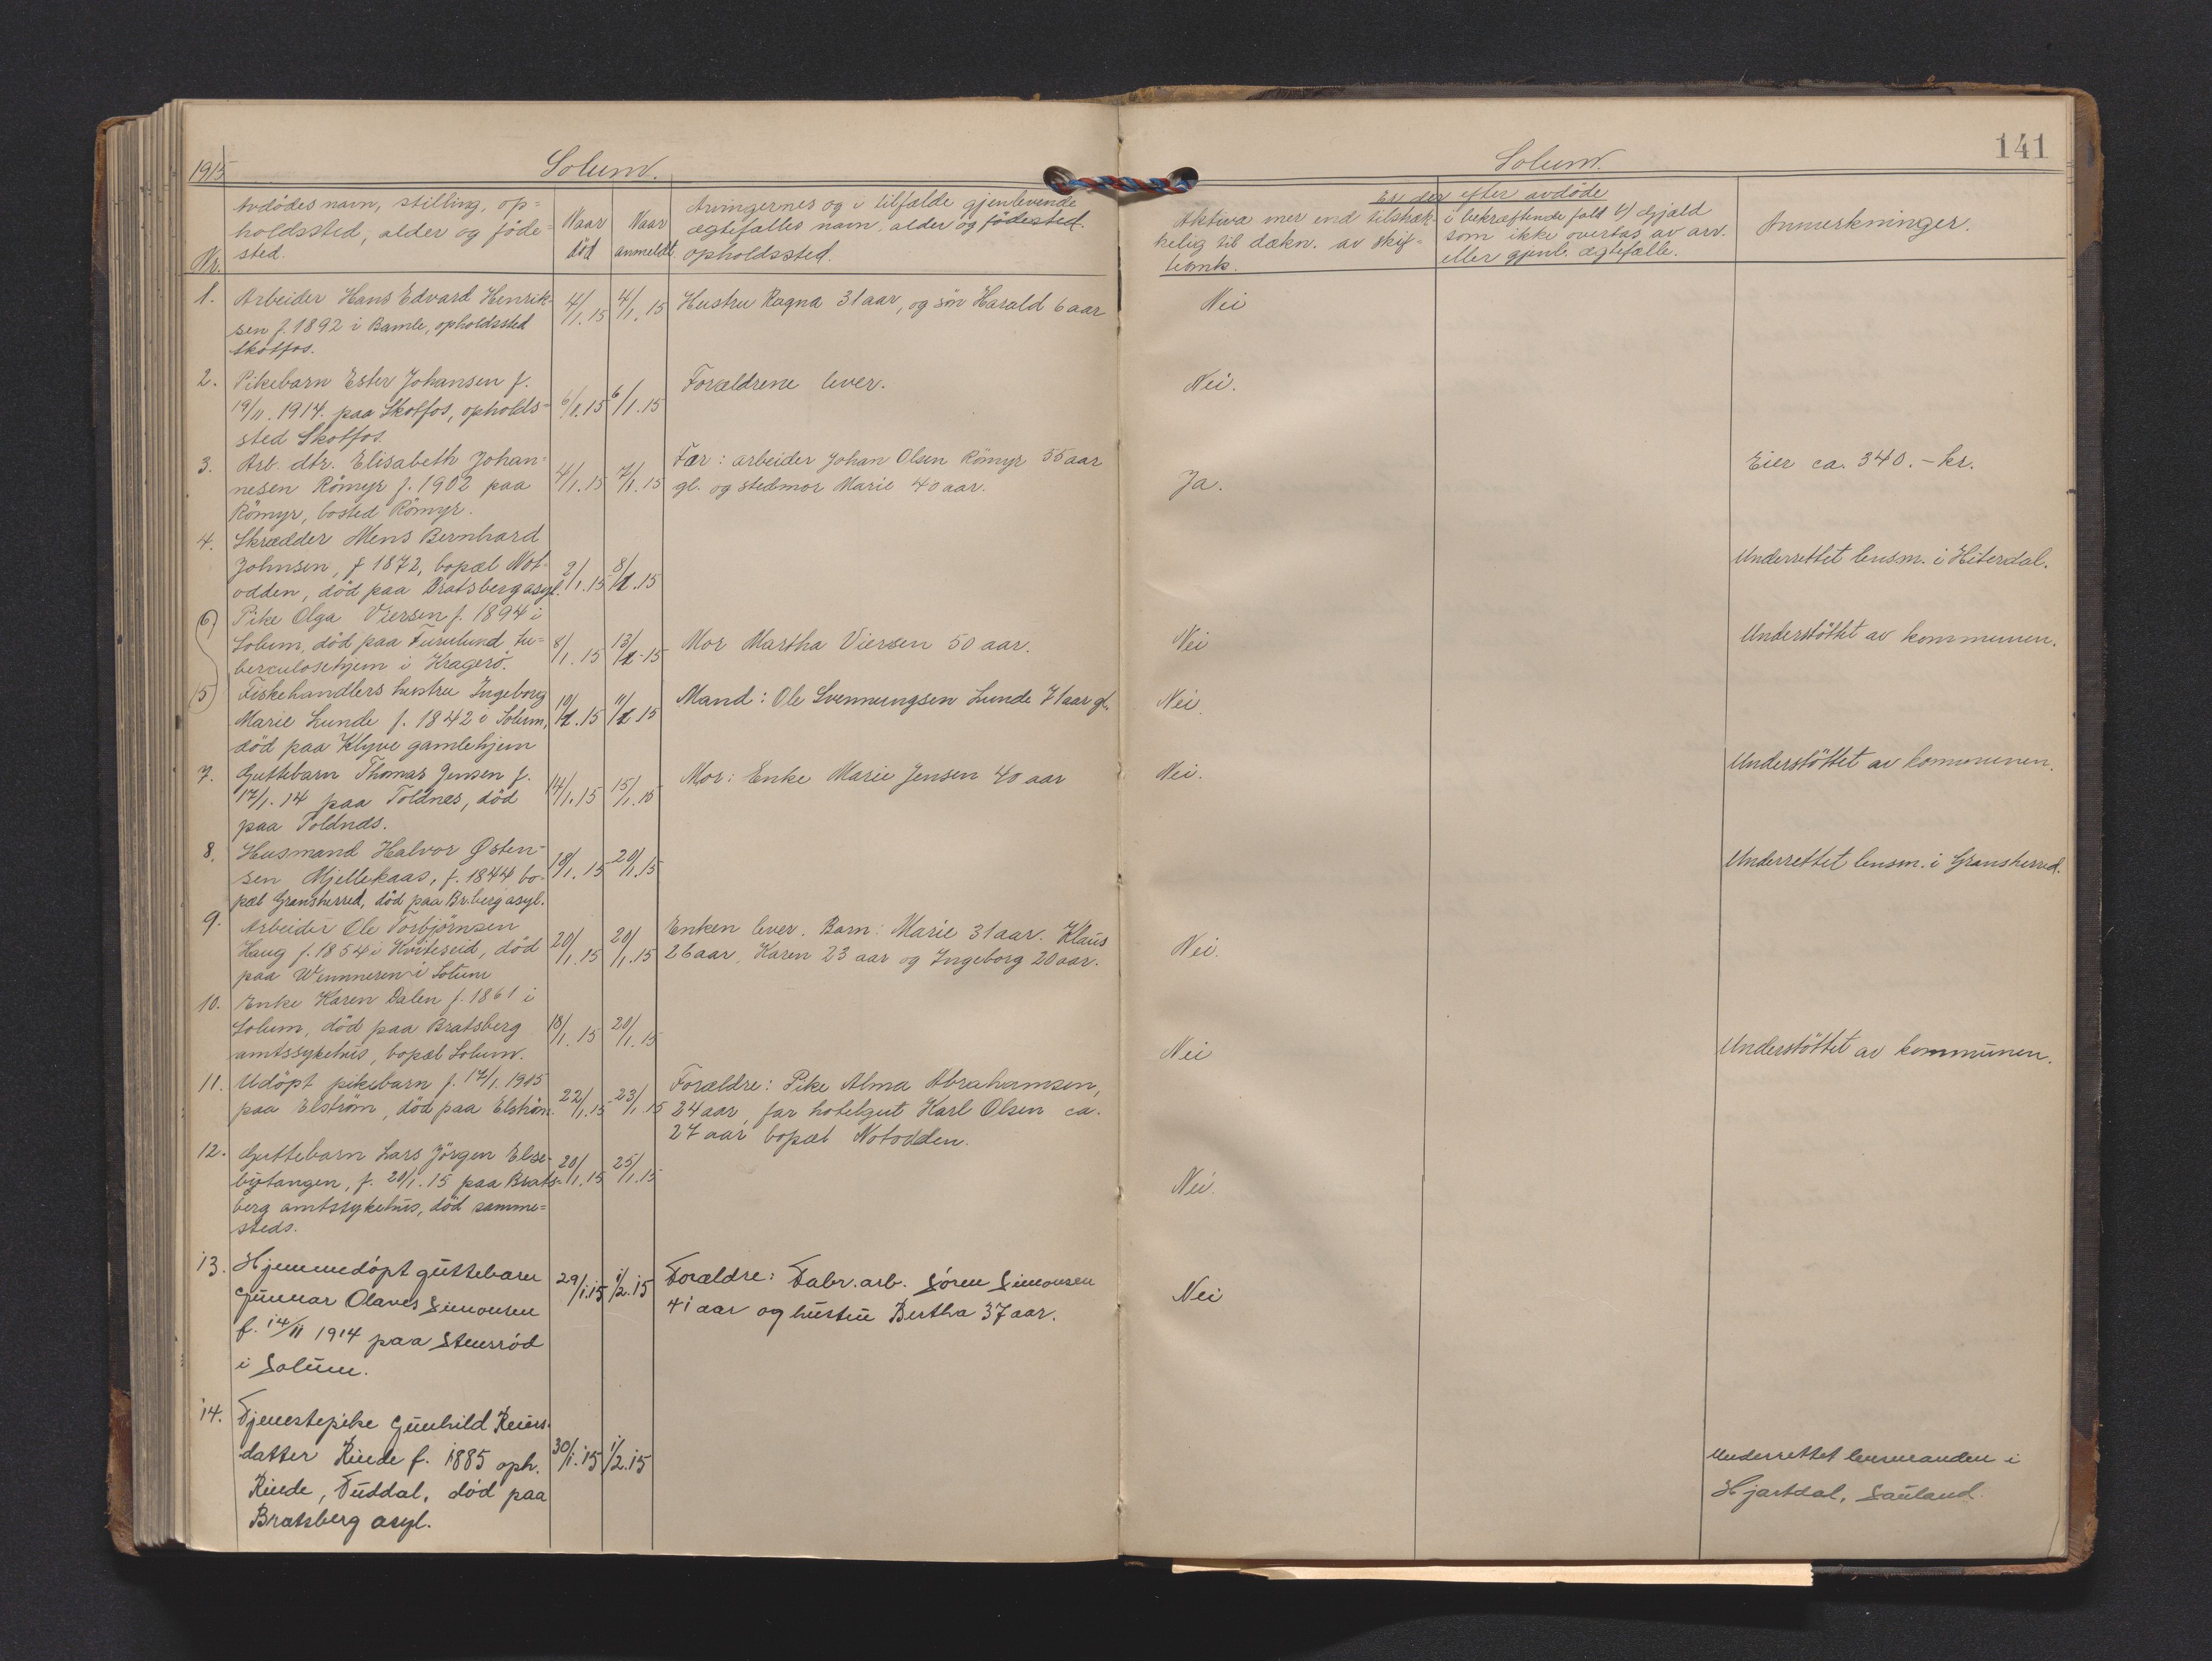 1915
Solum.
Nr.
Avdödes navn, stilling, op=
holdssted, alder og föde=
sted.
Naar
död
Naar
anmeldt.
Arvingernes og i tilfælde gjenlevende
ægtefælles navn, alder og födested.
opholdssted.
1.
Arbeider Hans Edvard Henrik-
sen f. 1892 i Bamle, opholdssted
Skotfos.
4/1. 15
4/1. 15
Hustru Ragna 31 aar, og sön Harald 6 aar
2.
Pikebarn Ester Johansen f.
19/11. 1914. paa Skotfos, opholds=
sted Skotfos.
6/1. 15
6/1. 15
Forældrene lever.
3.
Arb. dtr. Elisabeth Johan=
nesen Römyr f. 1902 paa
Römyr, bosted Römyr.
4/1. 15
7/1. 15
Far: arbeider Johan Olsen Römyr 55 aar
gl. og stedmor Marie 40 aar.
4.
Skrædder Mens Bernhard
Johnsen, f 1872, bopæl Not-
odden, död paa Bratsberg asyl.
2/1. 15
8/1. 15
6)
Pike Olga Viersen f. 1894 i
Solum, död paa Furulund tu=
berculosehjem i Kragerö.
8/1. 15
13/1-15
Mor Martha Viersen 50 aar.
5)
Fiskehandlers hustru Ingeborg
Marie Lunde f. 1842 i Solum,
död paa Klyve gamlehjem
10/1. 15
11/1 15
Mand: Ole Svennungsen Lunde 71 aar gl.
7.
Guttebarn Thomas Jensen f.
17/1. 14 paa Toldnes, död
paa Toldnes.
14/1. 15
15/1. 15
Mor: Enke Marie Jensen 40 aar
8.
Husmand Halvor Østen-
sen Mjellekaas, f. 1844 bo-
pæl Gransherred, död paa Br.berg asyl.
18/1. 15
20/1. 15
9.
Arbeider Ole Torbjörnsen
Haug f. 1854 i Kviteseid, död
paa Wemneren i Solum
20/1. 15
20/1. 15
Enken lever. Barn: Marie 31 aar. Klaus
26 aar, Karen 23 aar og Ingeborg 20 aar.
10.
Enke Karen Dalen f. 1861 i
Solum, död paa Bratsberg
amtssykehus, bopæl Solum.
18/1. 15
20/1. 15
11.
Udöpt pikebarn f. 17/1. 1915
paa Elström, död paa Elström.
22/1. 15
23/1 15
Forældre: Pike Alma Abrahamsen,
24 aar, far hotelgut Karl Olsen ca.
27 aar bopæl Notodden.
12.
Guttebarn Lars Jörgen Else-
bytangen, f. 20/1. 15 paa Brats-
berg amtssykehus, död samme=
steds.
20/1. 15
25/1. 15
13.
Hjemmedöpt guttebarn
Gunnar Olaves Simonsen
f. 14/11 1914 paa Stensröd
i Solum.
29/1. 15
1/2. 15
Forældre: Fabr. arb. Sören Simonsen
41 aar og hustru Bertha 37 aar.
14.
Tjenestepike Gunhild Reiers-
datter Rinde f. 1885 oph.
Rinde, Tuddal, död paa
Bratsberg asyl.
30/1. 15
1/2. 15
141
Solum.
Er der efter avdöde
Aktiva mer end tilstræk-
kelig til dækn. av skif=
teomk.
i bekræftende fald b) Gjæld
som ikke overtas av arv.
eller gjenl. ægtefælle.
Anmerkninger.
Nei
Nei.
Ja.
Eier ca. 340.- kr.
Underrettet lensm. i Hiterdal.
Nei
Understöttet av kommunen.
Nei.
Nei.
Understöttet av kommunen.
Underrettet lensm. i Gransherred.
Nei.
Nei
Understöttet av kommunen.
Nei.
Nei
Underrettet lensmanden i
Hjartdal, Sauland.